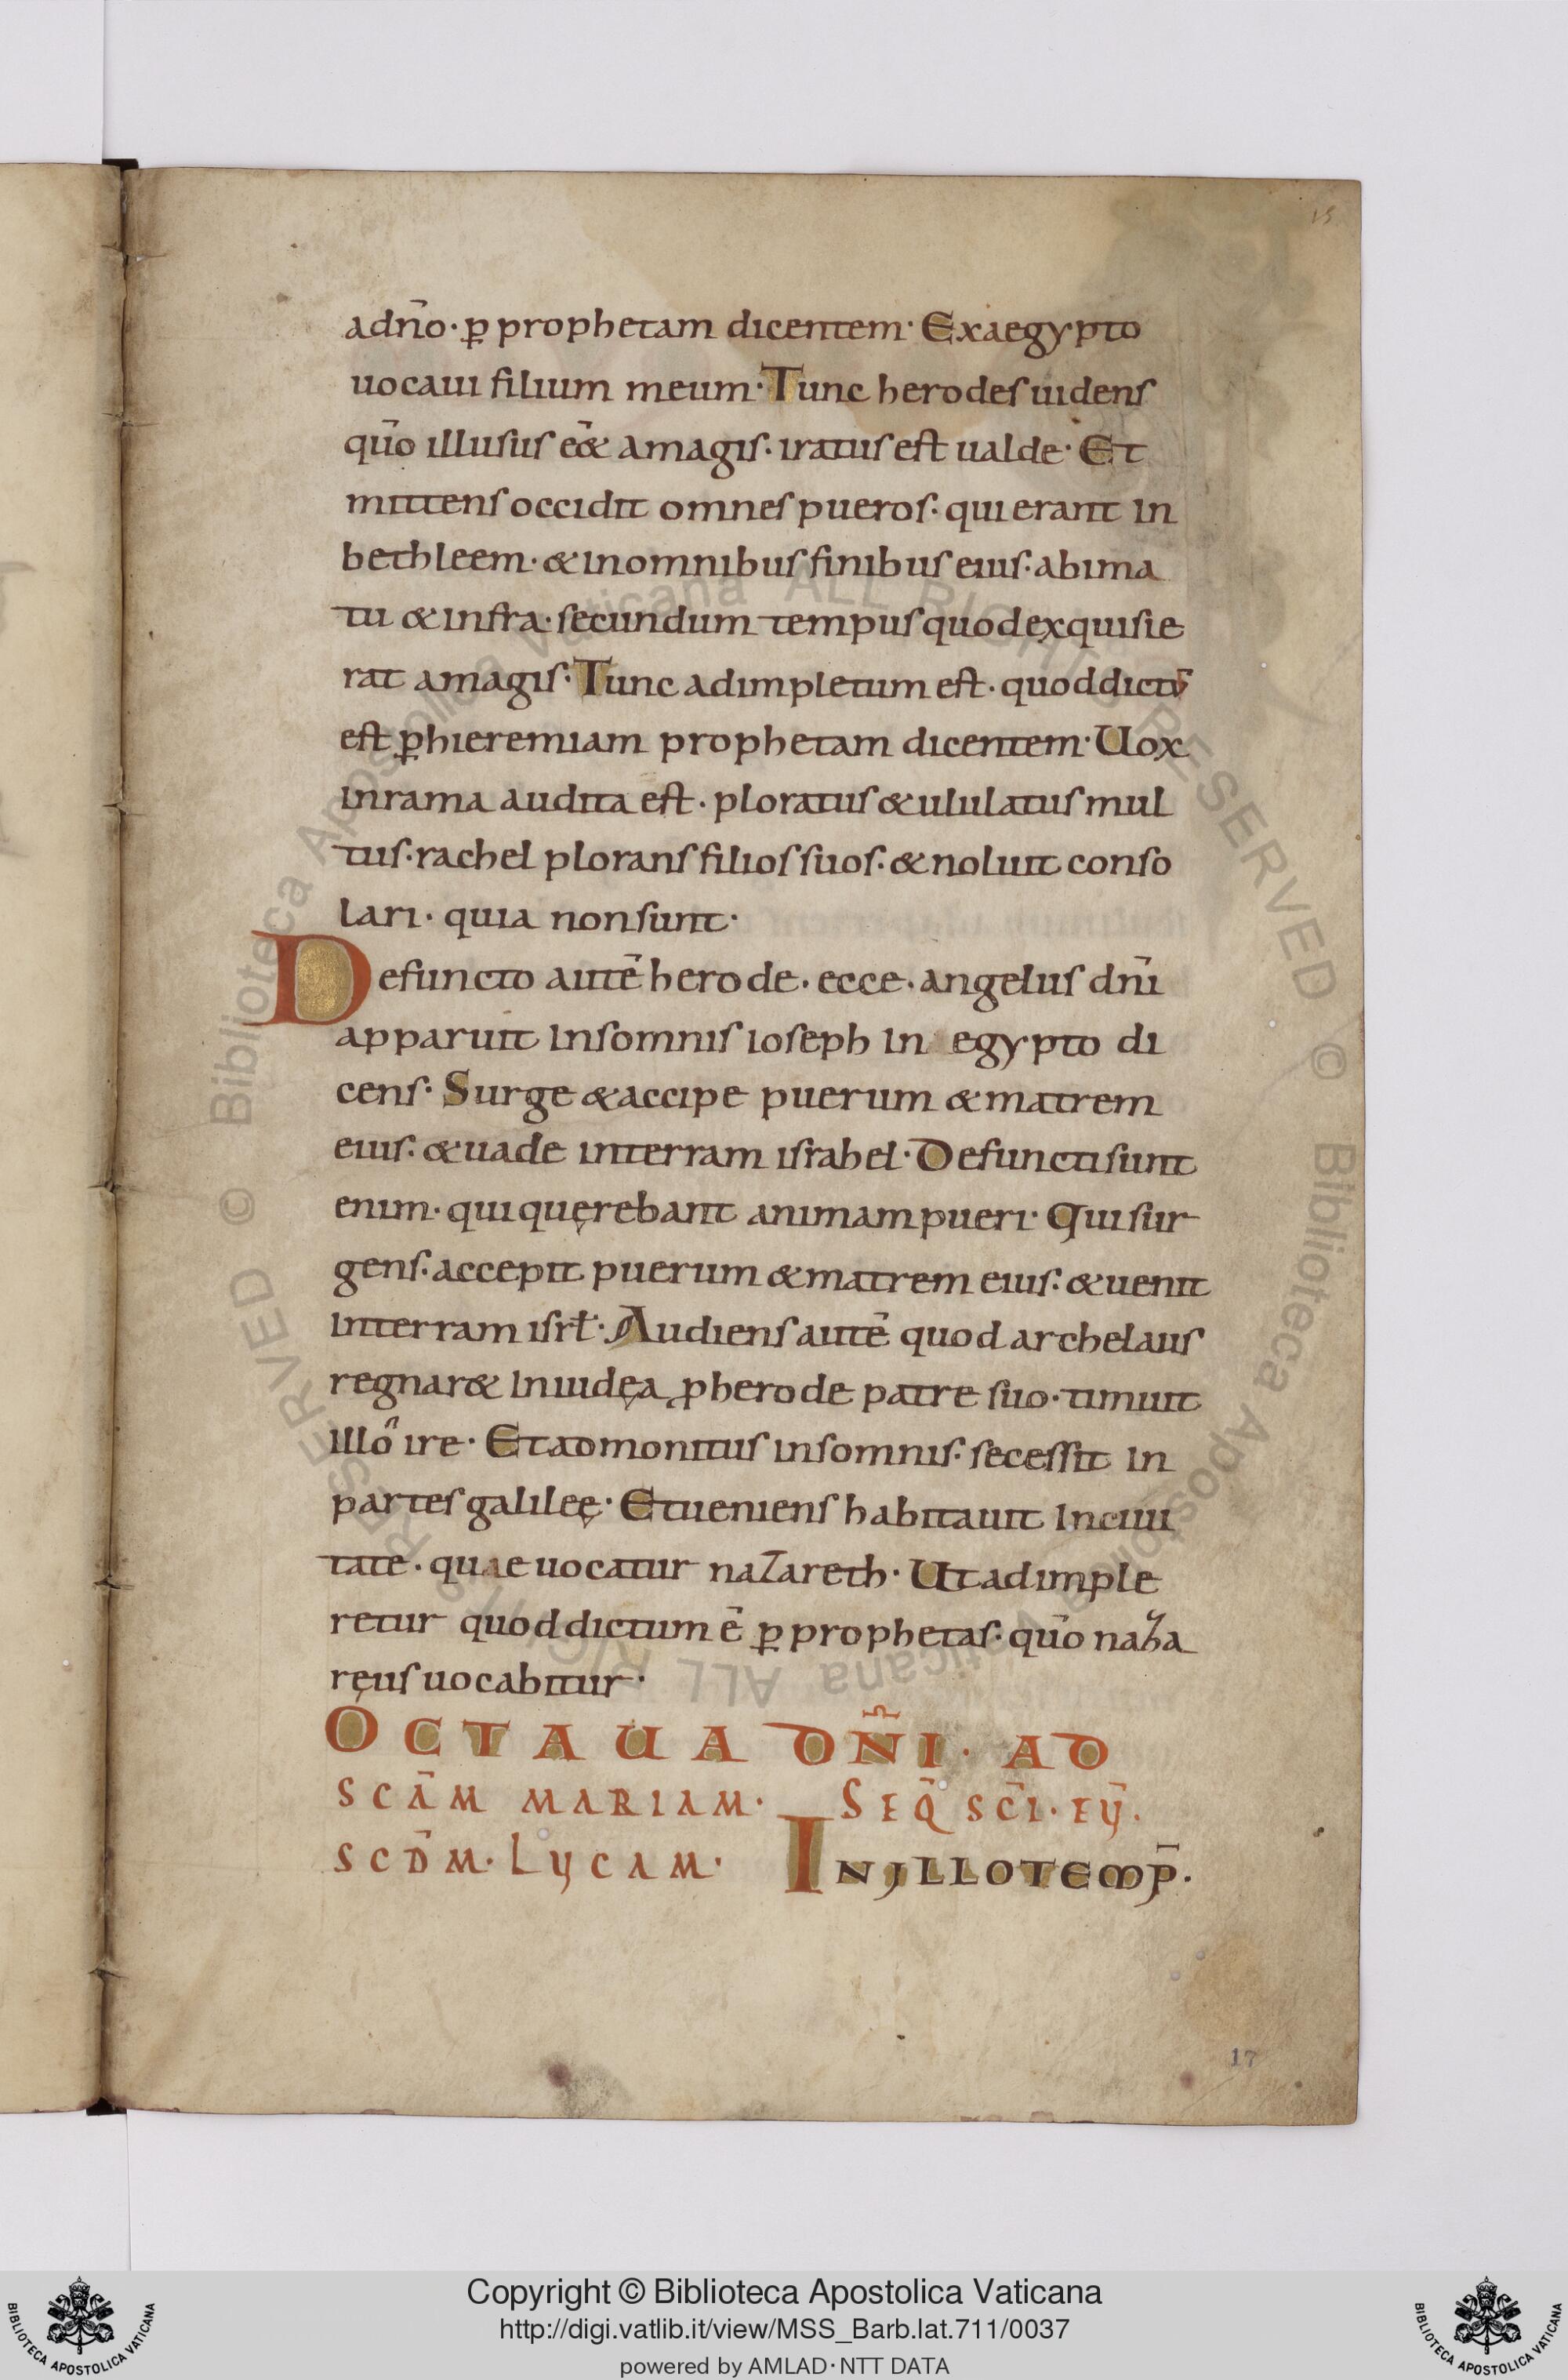 15
adn̄o· ꝑ prophetam dicentem· Exaegypto
uocaui filium meum· Tunc herodes uidens
qūo illusus eē& amagis· iratus est ualde· Et
mittens occidit omnes pueros· qui erant in
bethleem· & inomnibus finibus eius· abima
tu & infra· secundum tempus quodexquisie
rat amagis· Tunc adimpletum est· quoddictū
est ꝑhieremiam prophetam dicentem· Uox
inrama audita est· ploratus & ululatus mul
tus· rachel plorans filios suos· & noluit conso
lari· quia nonsunt·
Defuncto autē herode· ecce· angelus dn̄i
apparuit insomnis ioseph in egypto di
cens· Surge & accipe puerum & matrem
eius· & uade interram israhel· Defuncti sunt
enim· qui quęrebant animam pueri· Qui sur
gens· accepit puerum & matrem eius· & uenit
interram isrł· Audiens autē quod archelaus
regnar& iniudęa ꝓherode patre suo· timuit
illo ire· Et admonitus insomnis· secessit in
partes galileę· Et ueniens habitauit inciui
tate· quae uocatur nazareth· Ut adimple
retur quod dictum ē ꝑ prophetas· qūo naza
ręus uocabitur·
OCTAUA DN̄I· AD
SCĀM MARIAM· SEQ̄ SC̄I· EỸ·
SCD̄M· LYCAM· INILLOTEMP̄·
17
Copyright © Biblioteca Apostolica Vaticana
http://digi.vatlib.it/view/MSS_Barb.lat.711/0037
powered by AMLAD·NTT DATA
BIBLIOTECA APOSTOLICA VATICANA
BIBLIOTECA APOSTOLICA VATICANA
© Biblioteca Apostolica Vaticana ALL RIGHTS RESERVED
© Biblioteca Apostolica Vaticana ALL RIGHTS RESERVED